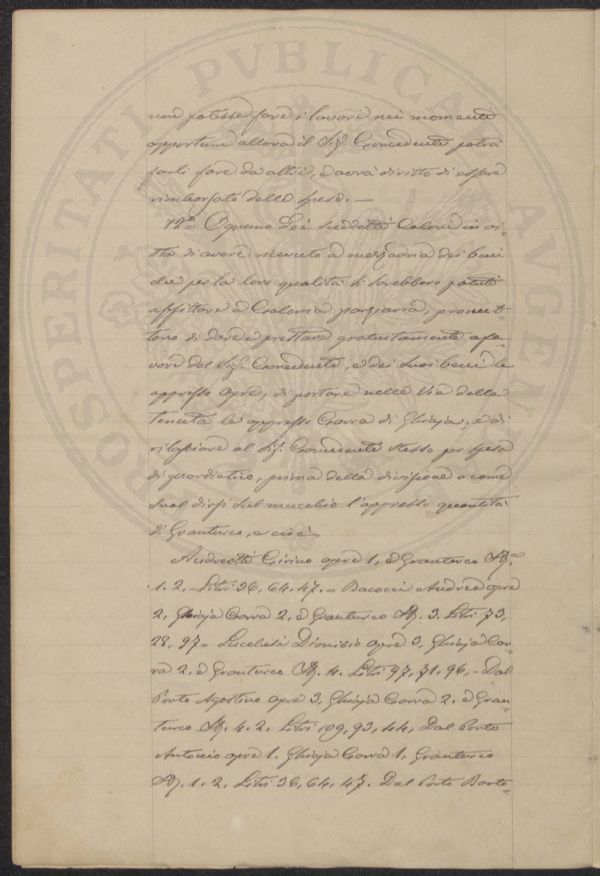 non potesse fare i lavori nei momenti
opportuni allora il Sig. Concedente potrà
farli fare da altri, e avrà diritto di essere
rimborsato delle spese. —
12° Ognuno dei suddetti Coloni in vi-
sta di avere ricevuto a mezzadria dei beni
che per la loro qualità si sarebbero potuti
affittare a Colonia parziaria, promet-
tono di dare e prestare gratuitamente a fa-
vore del Sig. Concedente, e dei suoi beni le
appresso opre, di portare nelle vie della
tenuta le appresso Carra di Ghiaja, e di
rilasciare al Sig. Concedente stesso per spesa
di guardiatico, prima della divisione o come
suol dirsi sul mucchio l'appresso quantità
di Granturco, e cioè;
Andreotti Cirino opre 1, e Granturco
1. 2. - Litri 36, 64, 47. - Bacocci Andrea opre
2, Ghiaja Carra 2, e Granturco 3. Litri 73,
28, 97 - Lucchesi Dionisio opre 3, Ghiaja Car-
ra 2, e Granturco 4. Litri 97, 71, 96, - Dal
Porto Agostino opre 3, Ghiaja Carra 2, e Gran-
turco 4. 2. Litri 109, 93, 44, Dal Porto
Antonio opre 1. Ghiaja Carra 1, Granturco
1. 2. Litri 36, 64, 47. Dal Porto Barto-
PROSPERITATI PVBLICAE AVGENDAE